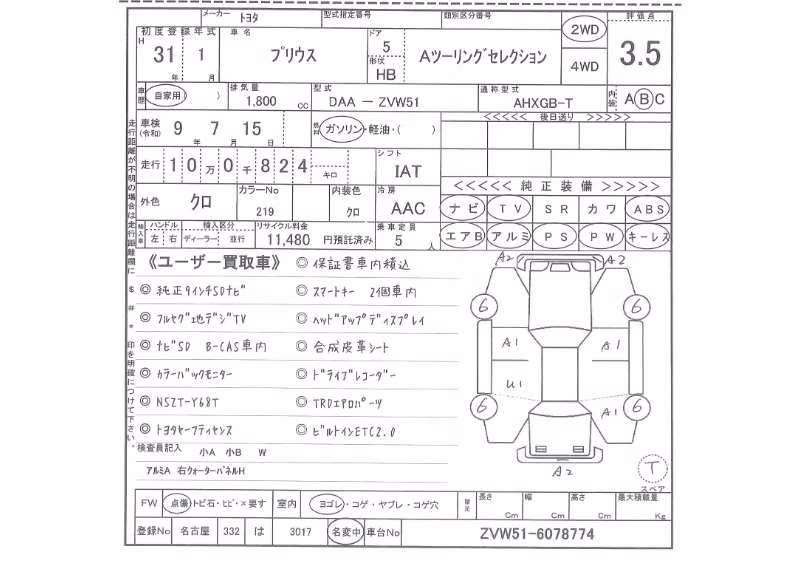 メーカー トヨタ 型式指定番号 類別区分番号 2WD 評価点
初度登録年式 車名 ドア
H 31 年 1 月 プリウス 5 形状 HB Aツーリングセレクション 4WD 3.5
車歴 自家用 ( ) 排気量 1,800 CC 型式 DAA - ZVW51 通称型式 AHXGB-T 内装 A B C
車検 (令和) 9 年 7 月 15 日 燃料 ガソリン・軽油・( ) <<<<< 後日送り >>>>>
走行 10万0千824 キロ シフト IAT
<<<<< 純正装備 >>>>>
外色 クロ カラーNo 219 内装色 クロ 冷房 AAC ナビ TV SR カワ ABS
輸入車 ハンドル 左 右 輸入区分 ディーラー 並行 リサイクル料金 11,480 円預託済み 乗車定員 5 人 エアB アルミ PS PW キーレス
走行距離が不明の場合は走行距離欄に $ # * 印を明確につけて下さい。
《ユーザー買取車》 ◎ 保証書車内積込
◎ 純正9インチSDナビ ◎ スマートキー 2個車内
◎ フルセグ地デジTV ◎ ヘッドアップディスプレイ
◎ ナビSD B-CAS車内 ◎ 合成皮革シート
◎ カラーバックモニター ◎ ドライブレコーダー
◎ NSZT-Y68T ◎ TRDエアロパーツ
◎ トヨタセーフティセンス ◎ ビルトインETC2.0
検査員記入 小A 小B W
アルミA 右クォーターパネルH
A2 A2
6 6
A1 A1
U1
6 A1 6
A2
T
スペア
FW 点傷・トビ石・ヒビ・×要す 室内 ヨゴレ・コゲ・ヤブレ・コゲ穴 長さ Cm 幅 Cm 高さ Cm 最大積載量 Kg
登録No 名古屋 332 は 3017 名変中 車台No ZVW51-6078774